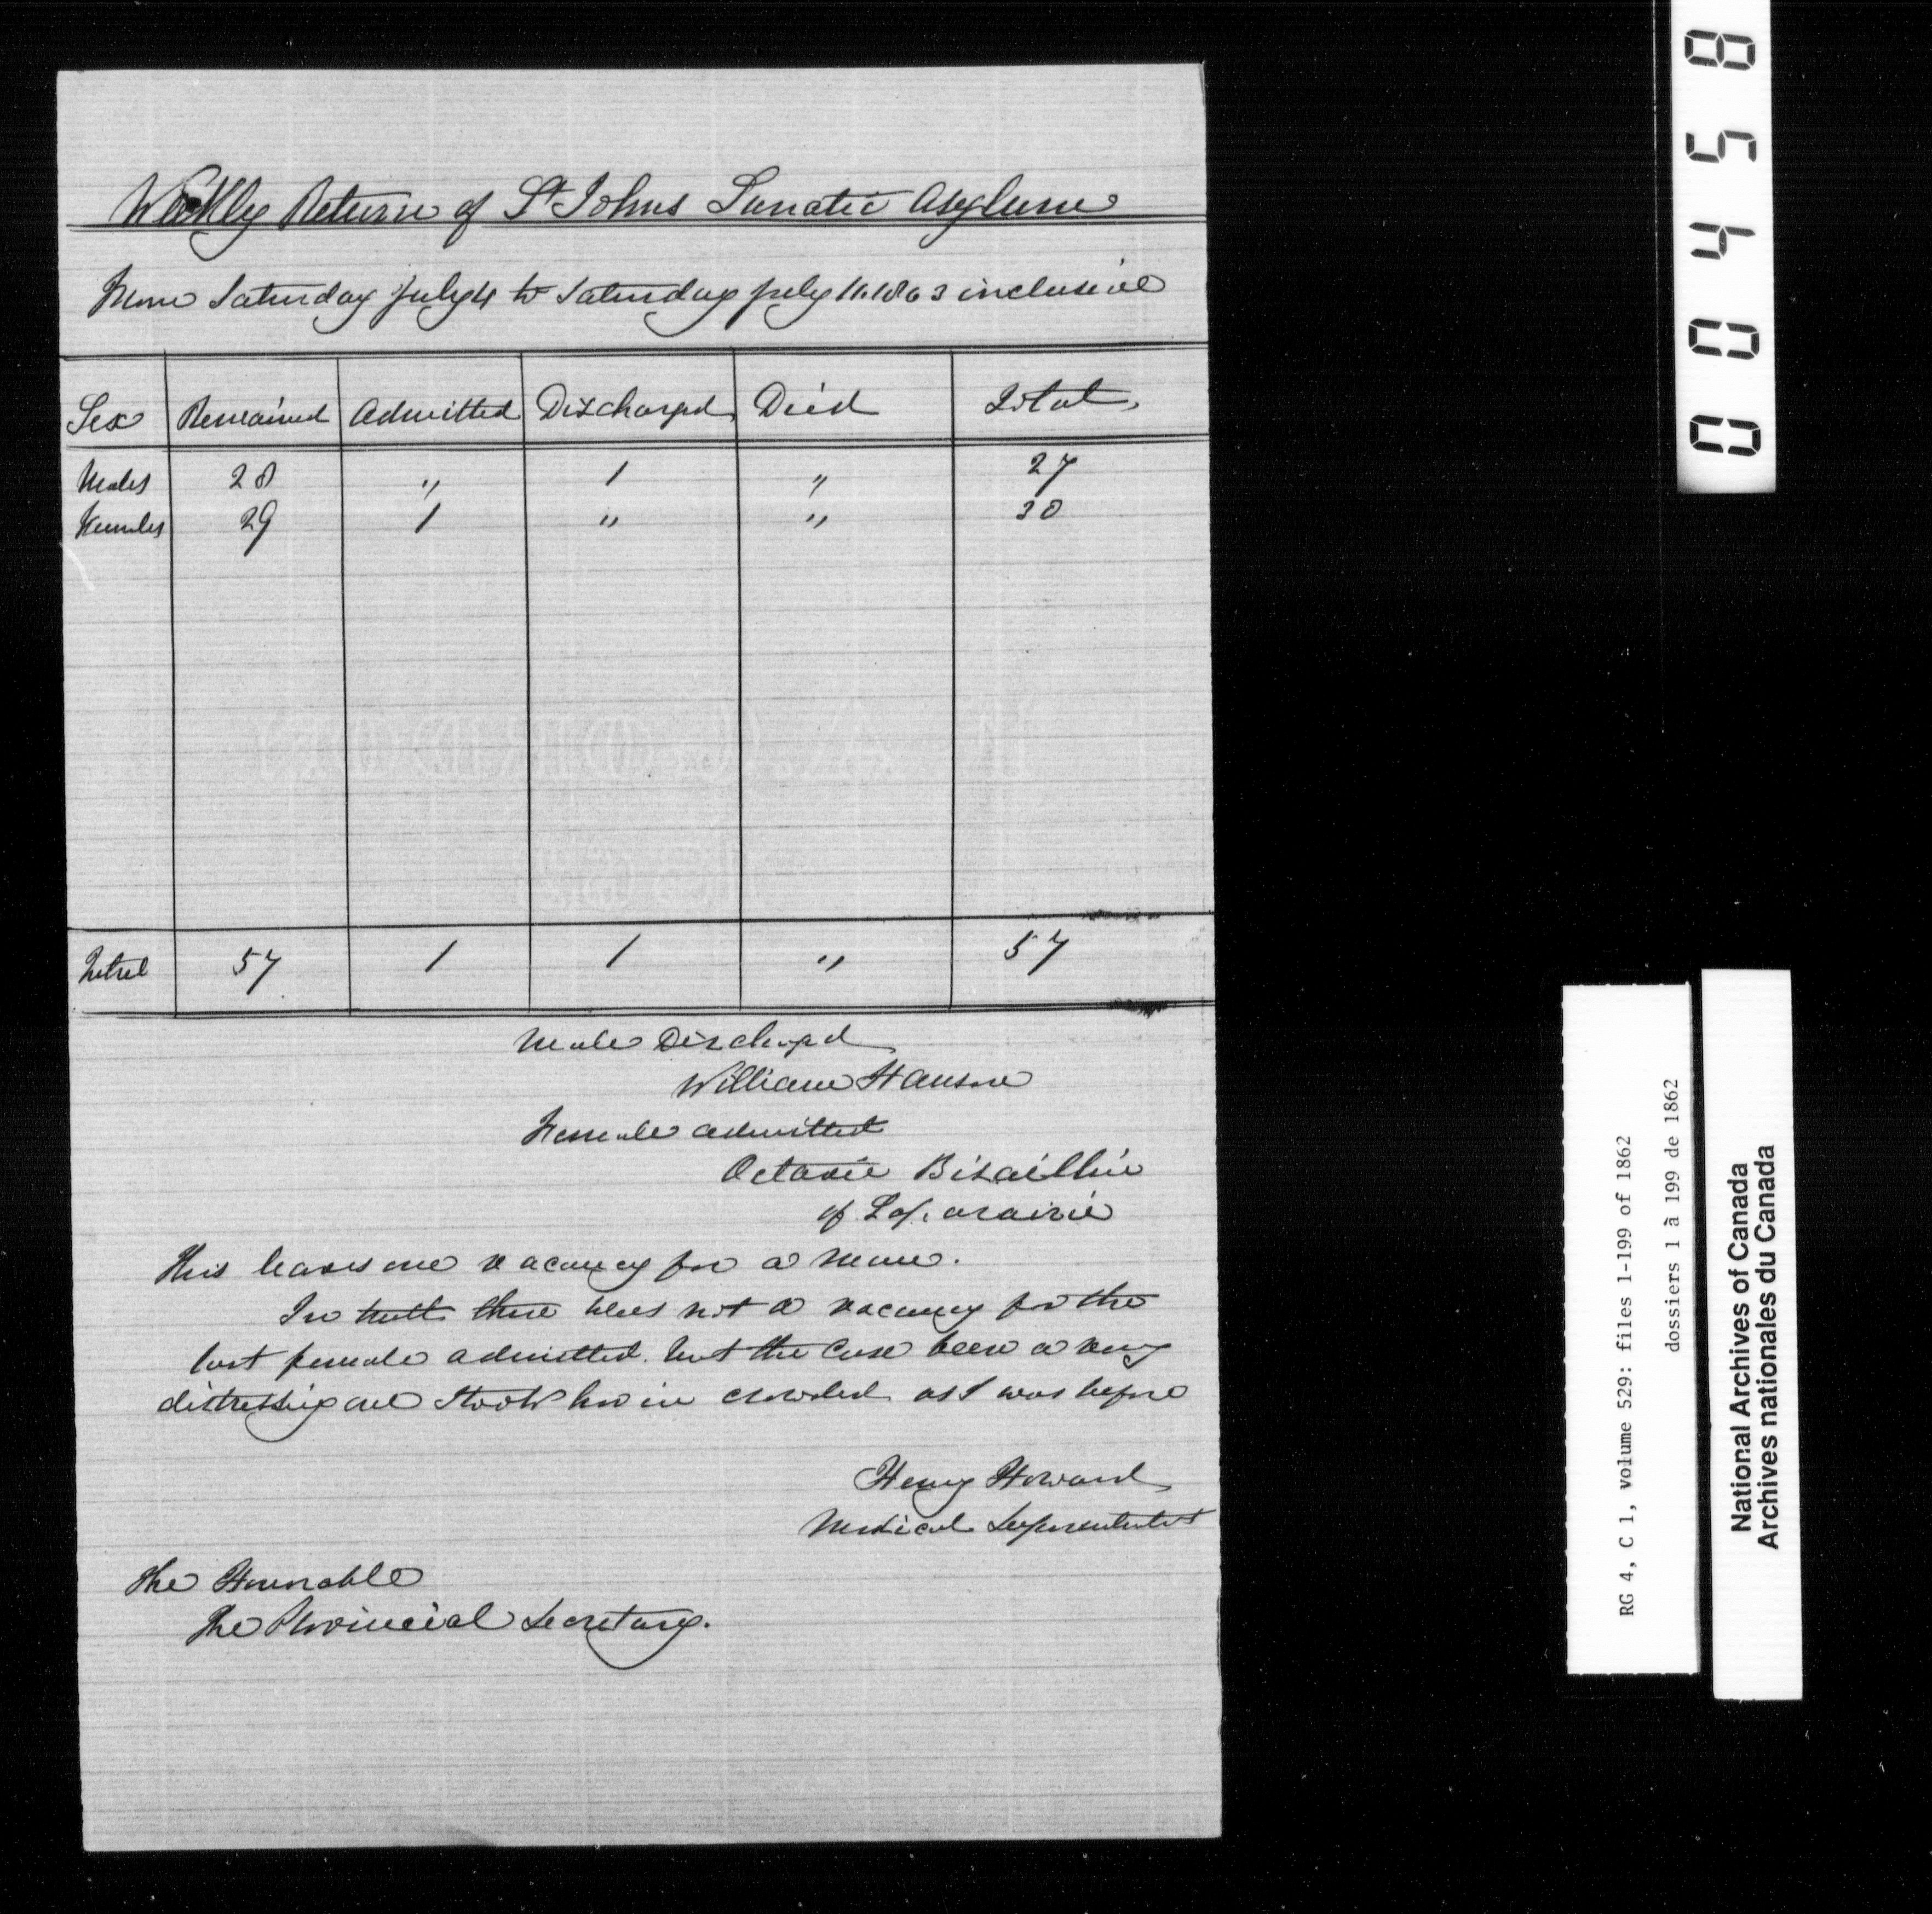 Weekly Return of St Johns Lunatic Asylum
From Saturday July 4 to Saturday July 11. 1863 inclusive
Sex Remained Admitted Discharged Died Total
Males 28 " 1 " 27
Females 29 1 " " 30
Total 57 1 1 " 57
Male Discharged
William Hanson
Female admitted
Octavie Bisaillin
of Laprairie
This leaves one vacancy for a man.
In truth there was not a vacancy for the
last female admitted. but the case been a very
distressing one I took her in crowded as I was before
Henry Howard
Medical Superintendent
The Honorable
The Provincial Secretary.
00458
RG 4, C 1, volume 529: files 1-199 of 1862
dossiers 1 à 199 de 1862
National Archives of Canada
Archives nationales du Canada